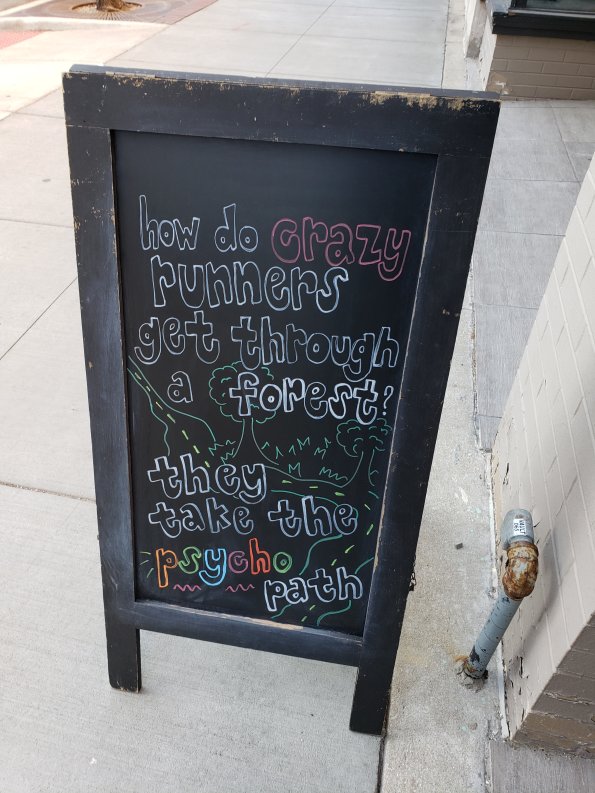 how do crazy
runners
get through
a forest?
they
take the
psycho
path